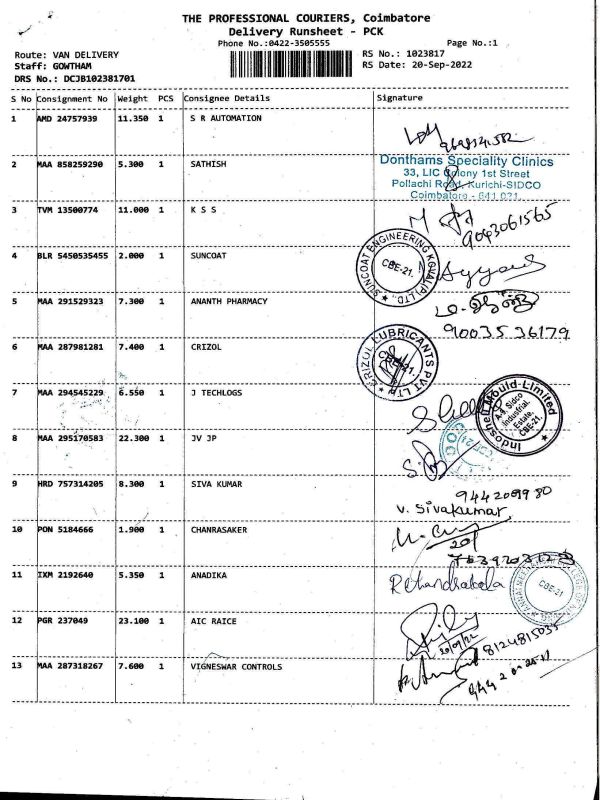 THE PROFESSIONAL COURIERS, Coimbatore
Delivery Runsheet - PCK
Phone No.:0422-3505555
Page No.:1
Route: VAN DELIVERY
RS No.: 1023817
Staff: GOWTHAM
RS Date: 20-Sep-2022
DRS No.: DCJB102381701
S No Consignment No Weight PCS Consignee Details Signature
1 AMD 24757939 11.350 1 S R AUTOMATION
2 MAA 858259290 5.300 1 SATHISH
Donthams Speciality Clinics
33, LIC Colony 1st Street
Pollachi Road, Kurichi-SIDCO
Coimbatore - 641 021.
3 TVM 13500774 11.000 1 K S S
9043061565
4 BLR 5450535455 2.000 1 SUNCOAT
SUNCOAT ENGINEERING
CBE-21.
5 MAA 291529323 7.300 1 ANANTH PHARMACY
9003536179
6 MAA 287981281 7.400 1 CRIZOL
CRIZOL LUBRICANTS PVT LTD
CBE-21.
7 MAA 294545229 6.550 1 J TECHLOGS
Indoshell Mould Limited
A-9 Sidco
Industrial
Estate,
CBE-21.
8 MAA 295170583 22.300 1 JV JP
9 HRD 757314205 8.300 1 SIVA KUMAR
9442099980
V. Sivakumar
10 PON 5184666 1.900 1 CHANRASAKER
11 IXM 2192640 5.350 1 ANADIKA
R Chandrakala
CBE-21
12 PGR 237049 23.100 1 AIC RAICE
20/9/22
8124815035
13 MAA 287318267 7.600 1 VIGNESWAR CONTROLS